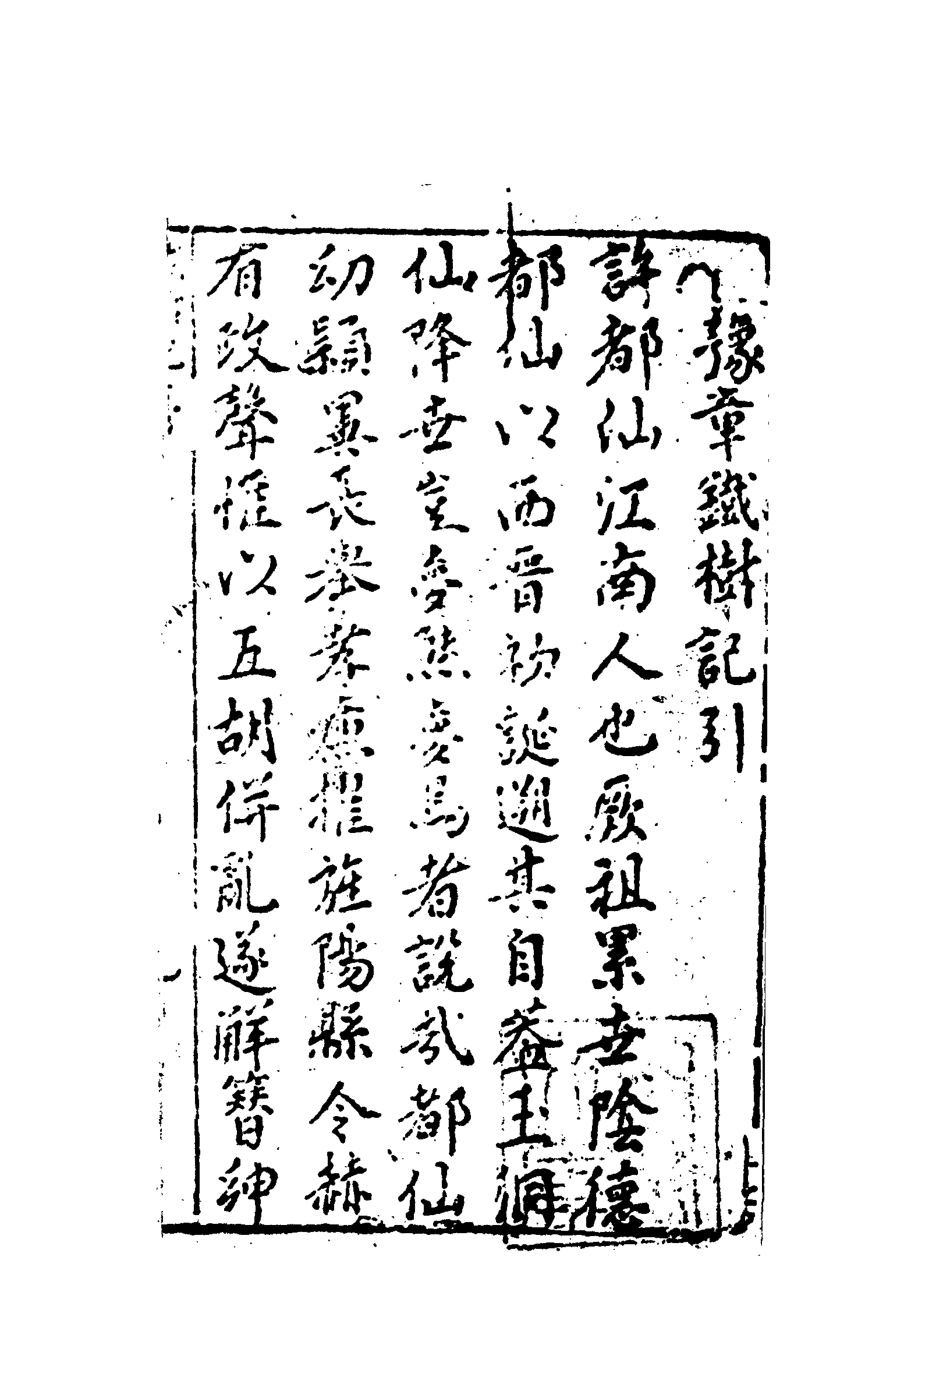 豫章鐵樹記引
許都仙江南人也厥祖累世陰德
都仙以西晉初誕遡其自蓋玉洞
仙降世豈夢熊夢馬者說哉都仙
幼穎異長舉孝廉擢旌陽縣令赫
有政聲惟以五胡併亂遂解簪紳